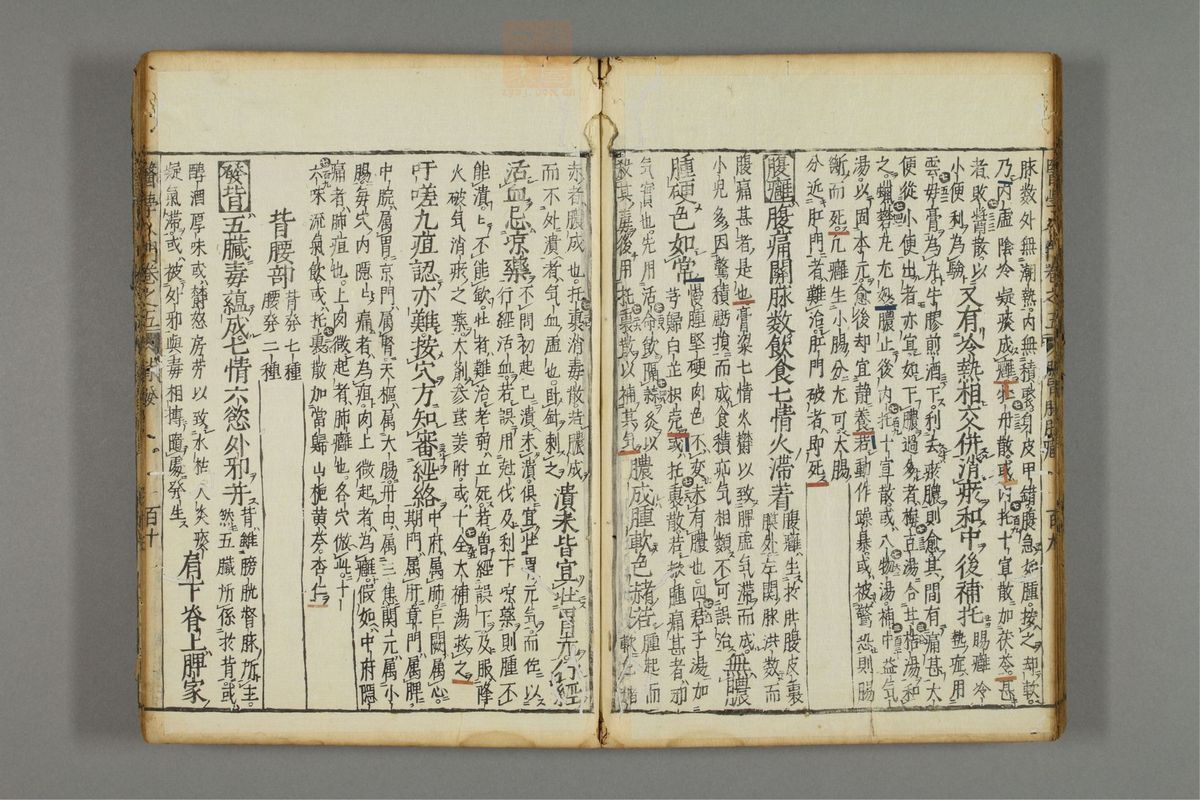 脉數外無潮熱内無積聚身皮甲錯腹急如腫按之却軟
乃内虛陰冷凝痰成癰牡丹散或内托十宣散加茯苓甚
者敗醬散以小便利為驗又有冷熱相交併消瘀和中後補托腸癰冷熱症用
雲母膏為丸牛膠煎酒下利去瘀膿則愈其間有痛甚大
便從小便出者亦宜如下膿過多者梅古湯合甘桔湯和
之蠟礬丸尤好膿止後内托十宣散或八物湯補中益氣
湯以固本元愈後却宜静養若動作躁暴或被驚恐則腸
斷而死凡癰生小腸分尤可大腸
分近肛門者難治肛門破者即死
腹癰腹痛關脉數飲食七情火滯着腹癰生於肚腹皮裏膜外左關脉洪數而
腹痛甚者是也膏粱七情火鬱以致脾虛气滯而成
小兒多因驚積磕損而成食積疝气相類不可誤治無膿
腫硬色如常腫堅硬肉色不變未有膿也四君子湯加芎歸白芷枳壳或托裏散若
气實也先用活命飲隔蒜灸以殺其毒後用托裏散以補其气膿成腫軟色赭活腫起而軟色赭
赤者膿成也托裏消毒散若膿成
而不外潰者气血虛也卧針刺之潰未皆宜壯胃先分經
活血忌凉藥不問初起已潰未潰俱宜壯胃元气而佐以行經活血若誤用尅伐及利下凉藥則腫不
能潰潰不能斂壮者難治老弱立死若曽經誤下及服降
火破气消瘀之藥大劑參芪姜附或十全大補湯救之
吁嗟九疽認亦難按穴方知審經絡中府属肺巨闕属心期門属肝章門属脾
中脘属胃京門属腎天樞属大腸丹田属三焦關元属小
腸每穴内隱痛者為疽肉上微起者為癰假如中府隱
痛者肺疽也上肉微起者肺癰也各穴倣此十
六味流氣飲或托裏散加當歸山梔黄芩杏仁
背腰部背發七種腰發二種
發背五臟毒蘊成七情六慾外邪并背雖膀胱督脉所主然五臟所係於背或
醇酒厚味或鬱怒房劳以致水枯火炎痰
凝氣滯或被外邪與毒相搏隨處發生有下脊上脾家